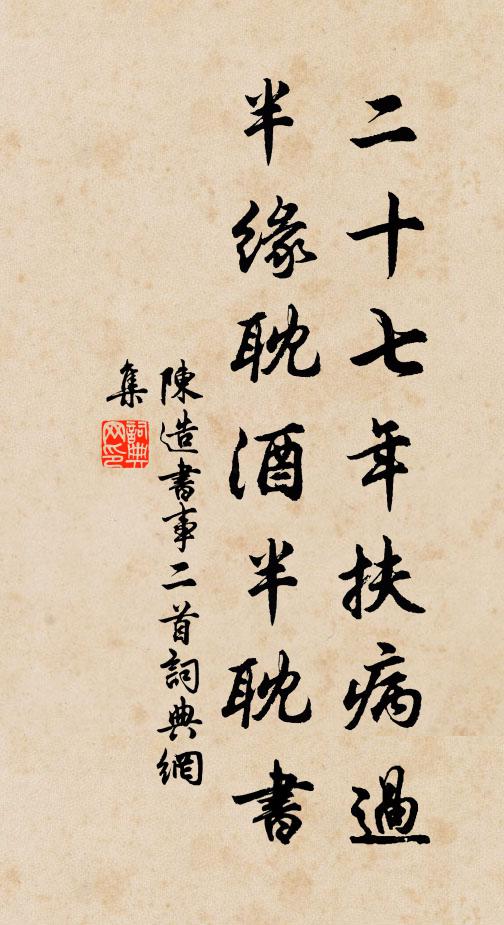 二十七年扶病過
半缘耽酒半耽書
陳造書事二首詞典網
集
詞典
网印